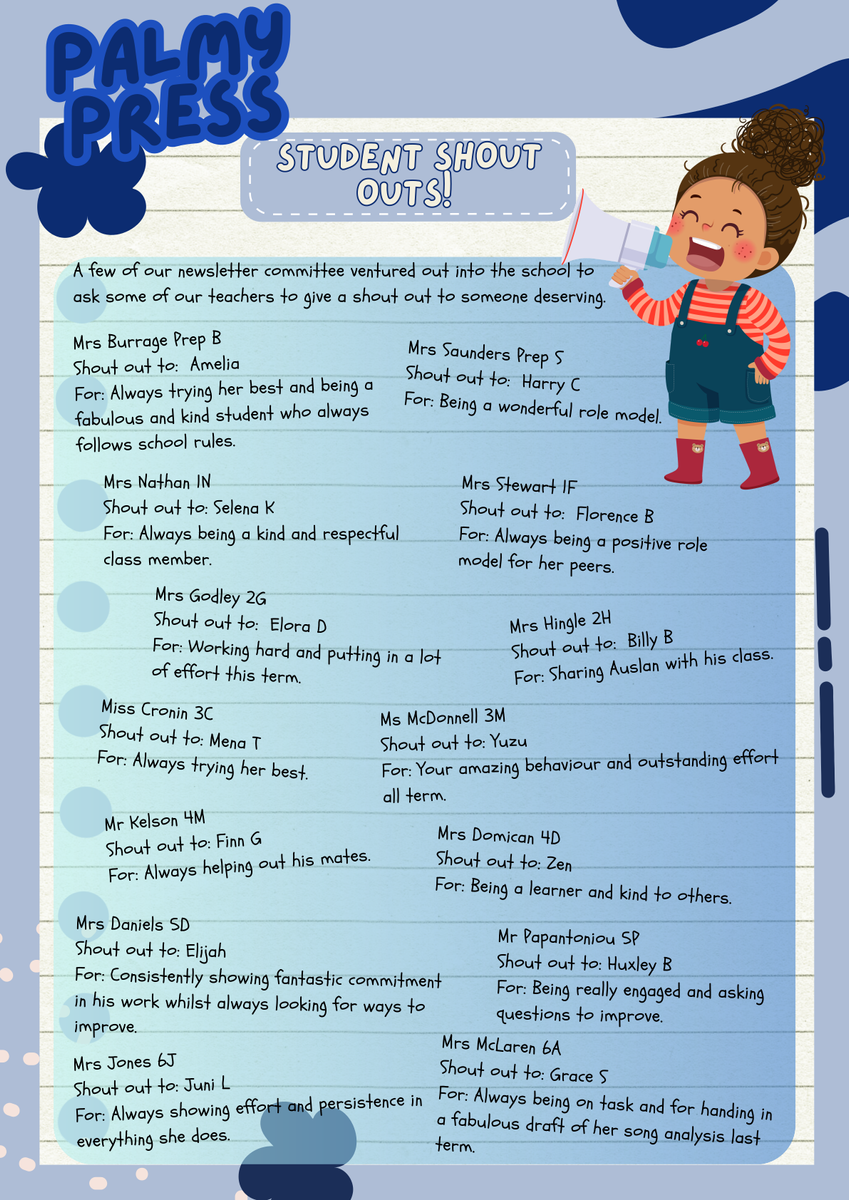 PALMY
PRESS
STUDENT SHOUT
OUTS!
A few of our newsletter committee ventured out into the school to
ask some of our teachers to give a shout out to someone deserving.
Mrs Burrage Prep B
Shout out to: Amelia
For: Always trying her best and being a
fabulous and kind student who always
follows school rules.
Mrs Saunders Prep S
Shout out to: Harry C
For: Being a wonderful role model.
Mrs Nathan 1N
Shout out to: Selena K
For: Always being a kind and respectful
class member.
Mrs Stewart 1F
Shout out to: Florence B
For: Always being a positive role
model for her peers.
Mrs Godley 2G
Shout out to: Elora D
For: Working hard and putting in a lot
of effort this term.
Mrs Hingle 2H
Shout out to: Billy B
For: Sharing Auslan with his class.
Miss Cronin 3C
Shout out to: Mena T
For: Always trying her best.
Ms McDonnell 3M
Shout out to: Yuzu
For: Your amazing behaviour and outstanding effort
all term.
Mr Kelson 4M
Shout out to: Finn G
For: Always helping out his mates.
Mrs Domican 4D
Shout out to: Zen
For: Being a learner and kind to others.
Mrs Daniels 5D
Shout out to: Elijah
For: Consistently showing fantastic commitment
in his work whilst always looking for ways to
improve.
Mr Papantoniou 5P
Shout out to: Huxley B
For: Being really engaged and asking
questions to improve.
Mrs Jones 6J
Shout out to: Juni L
For: Always showing effort and persistence in
everything she does.
Mrs McLaren 6A
Shout out to: Grace S
For: Always being on task and for handing in
a fabulous draft of her song analysis last
term.